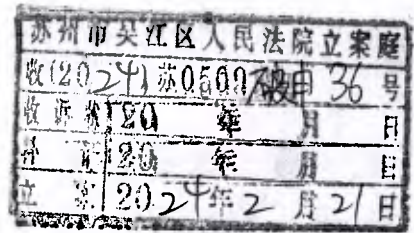 苏州市吴江区人民法院立案庭
收(2024)苏0509破申36号
收诉状 20 年 月 日
20 年 月 日
立案 2024年2月21日